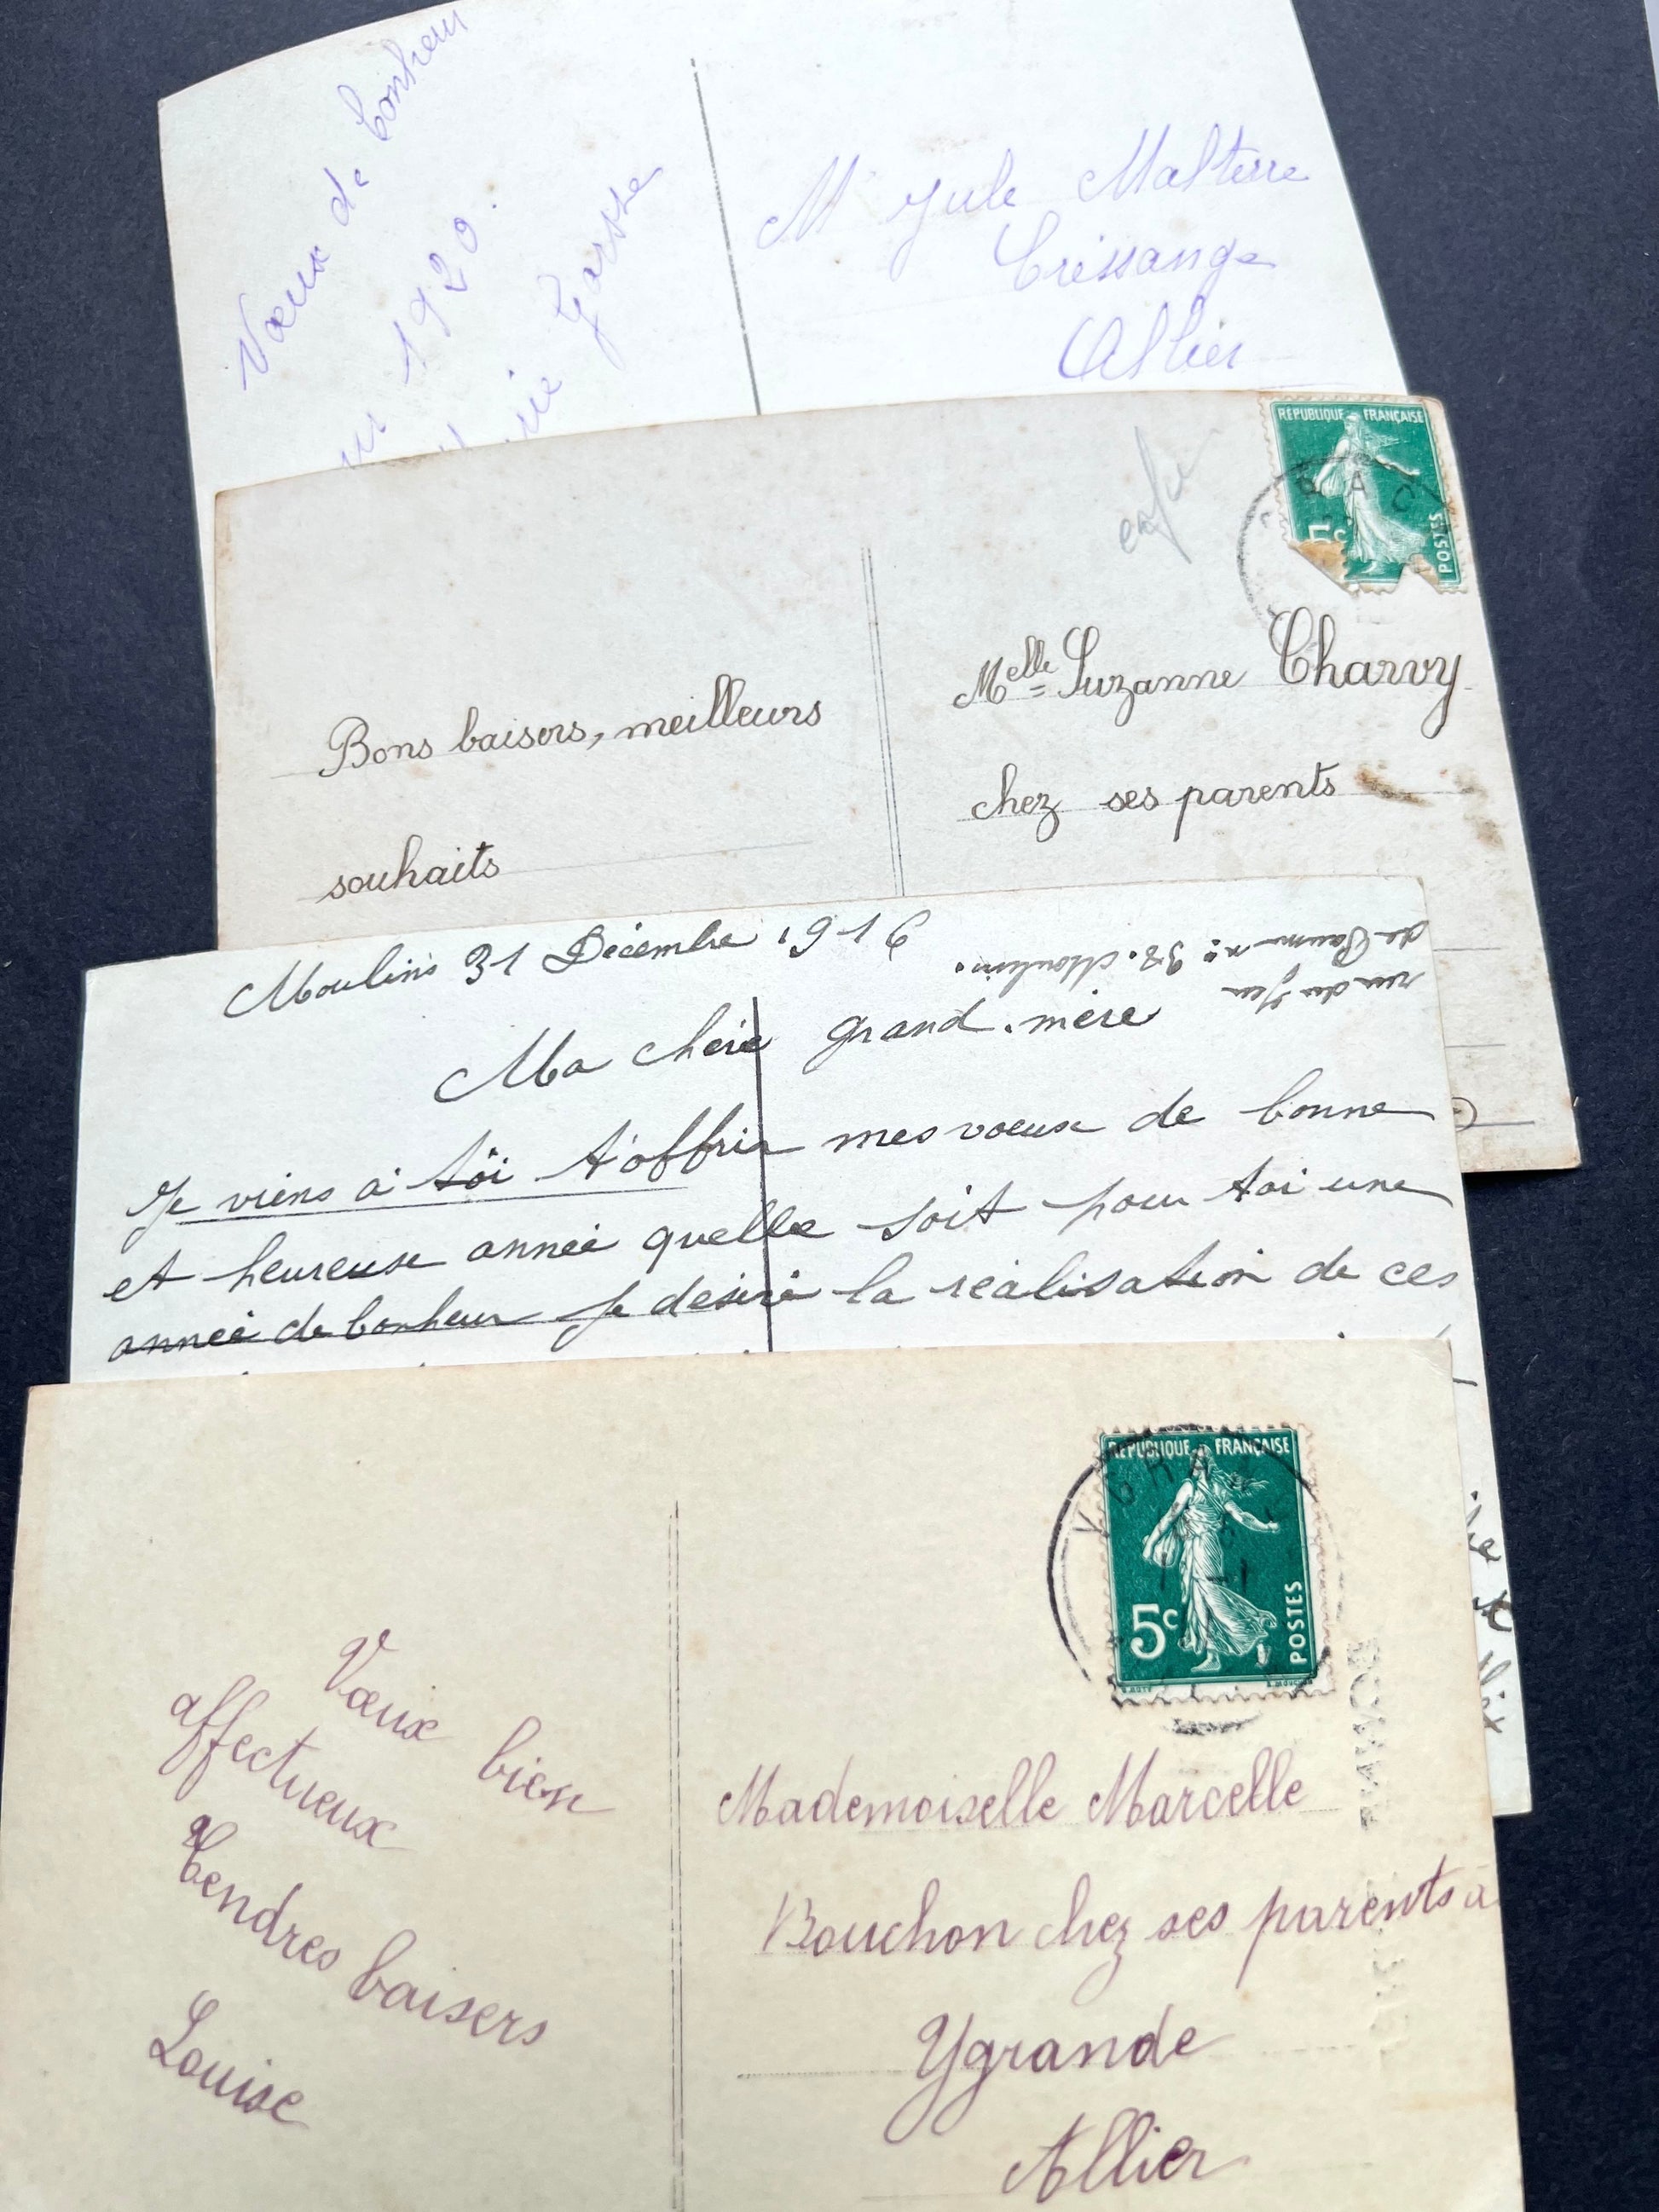 Vœux de bonheur
1920.
Gorsse
Mr Jule Malterre
Cressange
Allier
RÉPUBLIQUE FRANÇAISE
POSTES
Melle Suzanne Charvy
chez ses parents
Bons baisers, meilleurs
souhaits
Moulins 31 Décembre 1916
rue du Jeu
de Paume no 38. Moulins.
Ma chère grand-mère
Je viens à toi t'offrir mes voeux de bonne
et heureuse année quelle soit pour toi une
année de bonheur je désire la réalisation de ces
RÉPUBLIQUE FRANÇAISE
5c
POSTES
YGRANDE
Vœux bien
affectueux
Tendres baisers
Louise
Mademoiselle Marcelle
Bouchon chez ses parents à
Ygrande
Allier